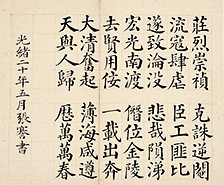 莊烈崇禎　克誅逆閹
流寇肆虐　臣工匪比
遂致淪没　悲哉隕涕
宏光南渡　僭位金陵
去賢用佞　一載出奔
大清奮起　薄海咸遵
天與人歸　歷萬萬春
光緒二十年五月張謇書